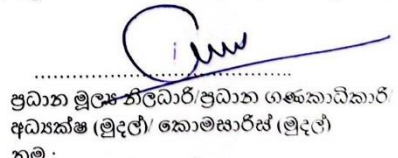 ................................................
ප්‍රධාන මූල්‍ය නිලධාරි/ප්‍රධාන ගණකාධිකාරි/
අධ්‍යක්ෂ (මුදල්)/ කොමසාරිස් (මුදල්)
නම :